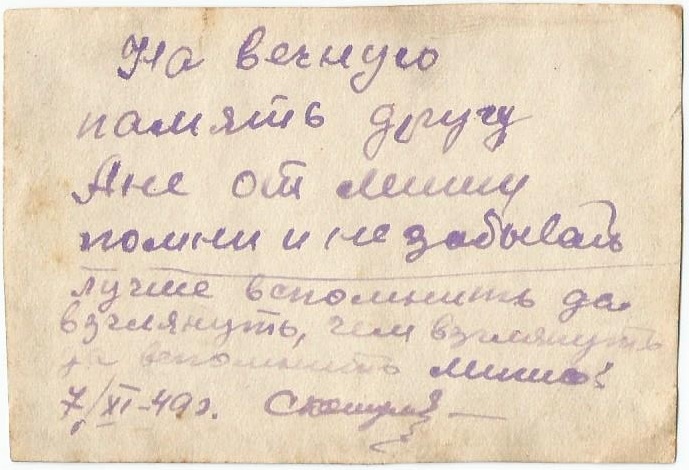 На вечную
память другу
Ане от миши
помни и не забывать
лучше вспомнить да
взглянуть, чем взглянуть
да вспомнить миша
7/XI-49г.